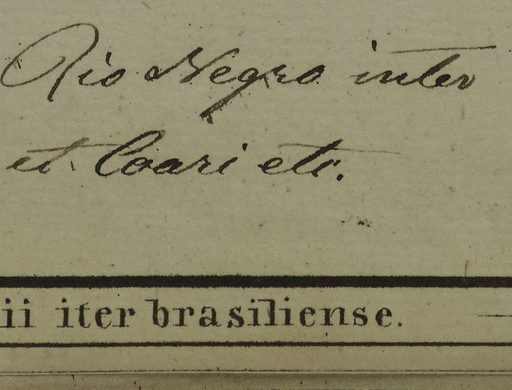 Rio Negro inter
et Coari etc.
ii iter brasiliense.